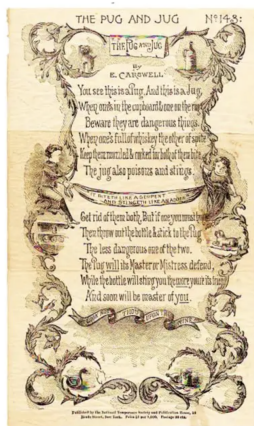 THE PUG AND JUG No 148:
THE PUG AND JUG
By
E. CARSWELL
You see this is a Pug, And this is a Jug,
When one's in the cupboard & one on the rug
Beware they are dangerous things.
When one's full of whiskey the other of spite
Keep them muzzled & corked for both of them bite
The jug also poisons and stings.
IT BITETH LIKE A SERPENT
AND STINGETH LIKE AN ADDER
Get rid of them both, But if one you must
Then throw out the bottle & stick to the Pug
The less dangerous one of the two.
The Pug will its Master or Mistress defend,
While the bottle will sting you the more you're its friend
And soon will be master of you.
LOOK NOT THOU UPON THE WINE
Published by the National Temperance Society and Publication House, 58
Reade Street, New York.